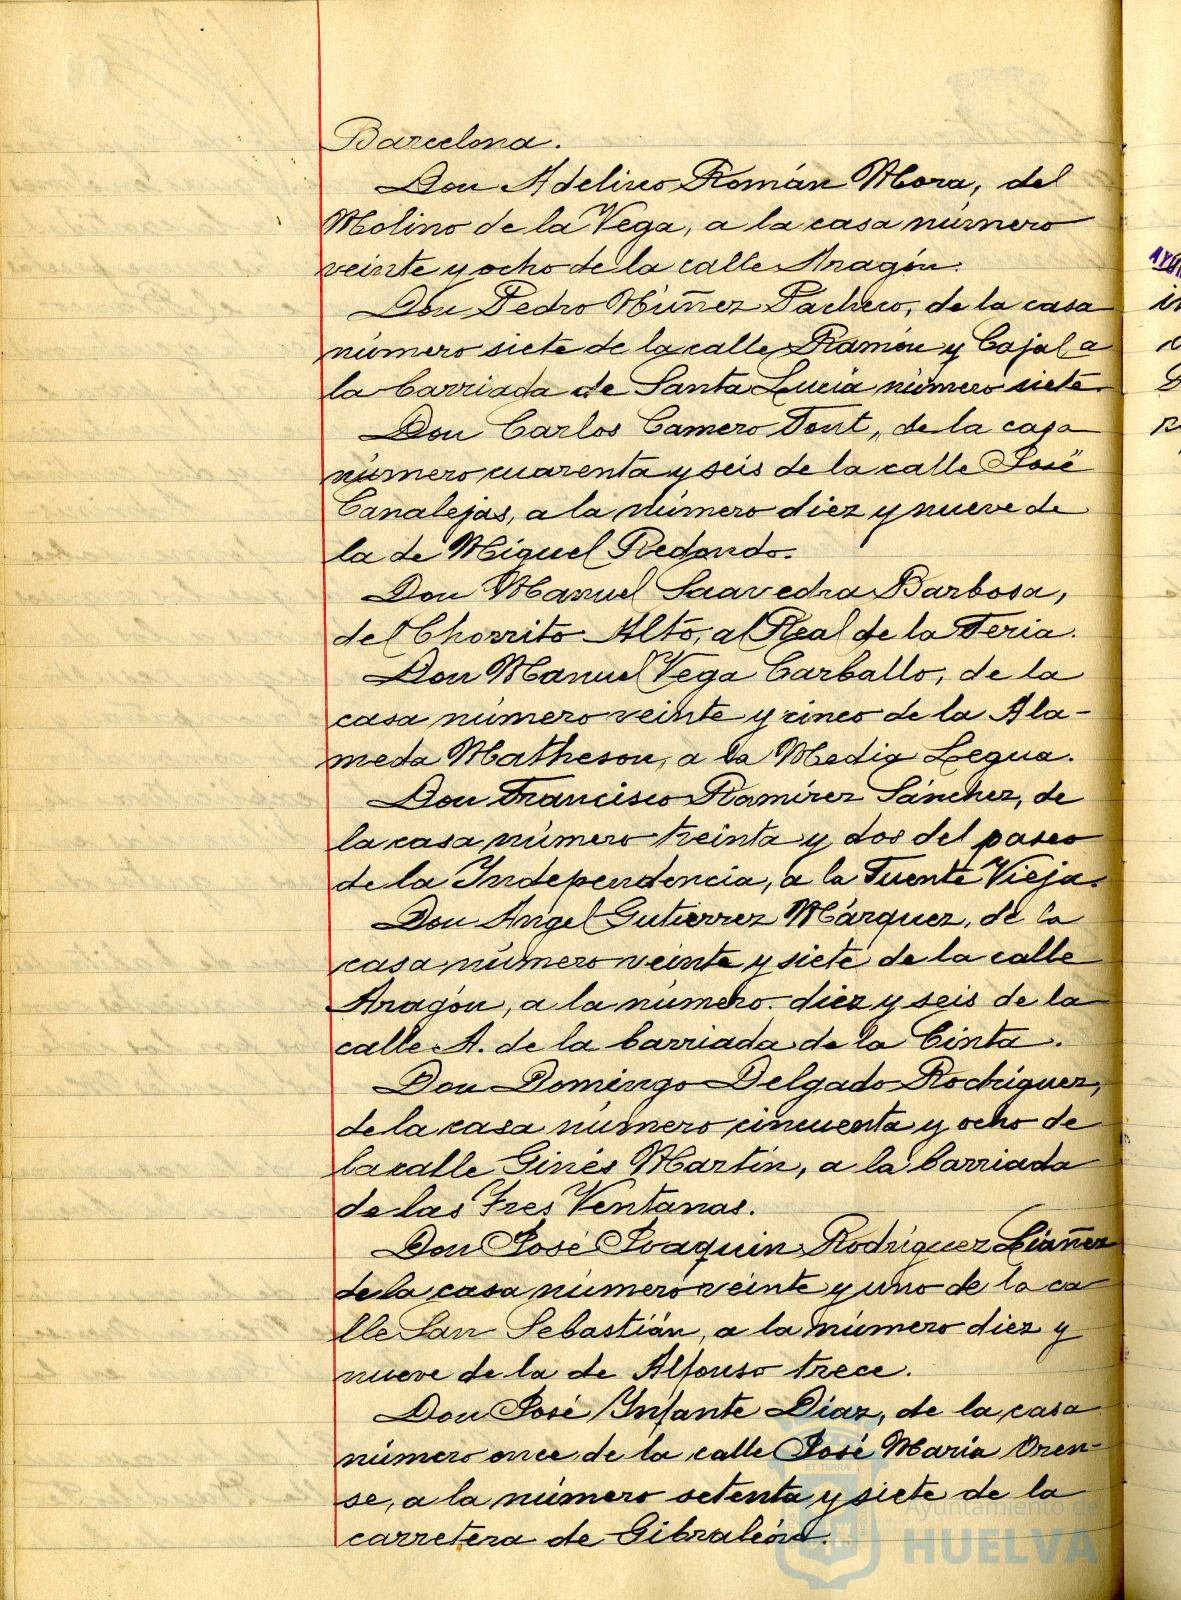 Barcelona.
Don Adelino Román Mora, del
Molino de la Vega, a la casa número
veinte y ocho de la calle Aragón.
Don Pedro Núñez Pacheco, de la casa
número siete de la calle Ramón y Cajal a
la barriada de Santa Lucía número siete.
Don Carlos Camero Font, de la casa
número cuarenta y seis de la calle José
Canalejas, a la número diez y nueve de
la de Miguel Redondo.
Don Manuel Saavedra Barbosa,
del Chorrito Alto, al Real de la Feria.
Don Manuel Vega Carballo, de la
casa número veinte y cinco de la Ala-
meda Matheson, a la Media Legua.
Don Francisco Ramírez Sánchez, de
la casa número treinta y dos del paseo
de la Independencia, a la Fuente Vieja.
Don Angel Gutierrez Márquez, de la
casa número veinte y siete de la calle
Aragón, a la número diez y seis de la
calle A. de la barriada de la Cinta.
Don Domingo Delgado Rodríguez,
de la casa número cincuenta y ocho de
la calle Ginés Martín, a la barriada
de las Tres Ventanas.
Don José Joaquin Rodríguez Liáñez
de la casa número veinte y uno de la ca
lle San Sebastián, a la número diez y
nueve de la de Alfonso trece.
Don José Infante Díaz, de la casa
número once de la calle José María Oren-
se, a la número setenta y siete de la
carretera de Gibraleón.
Ayuntamiento de
HUELVA